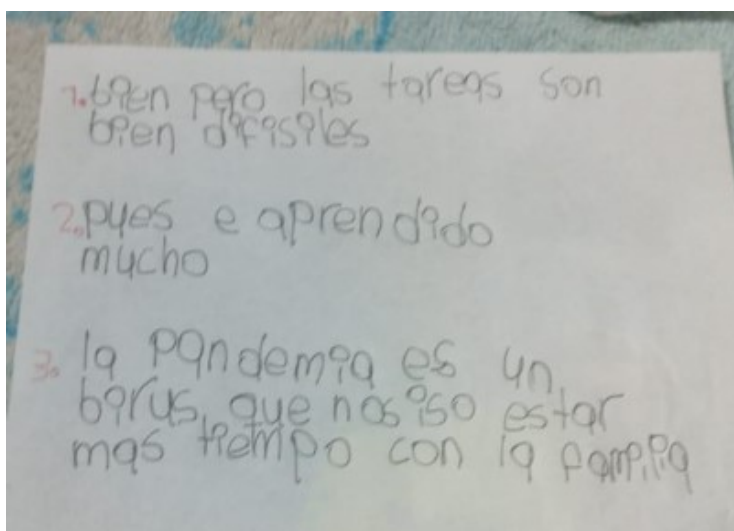 1. bien pero las tareas son
bien difisiles
2. pues e aprendido
mucho
3. la pandemia es un
birus, que nos iso estar
mas tiempo con la familia